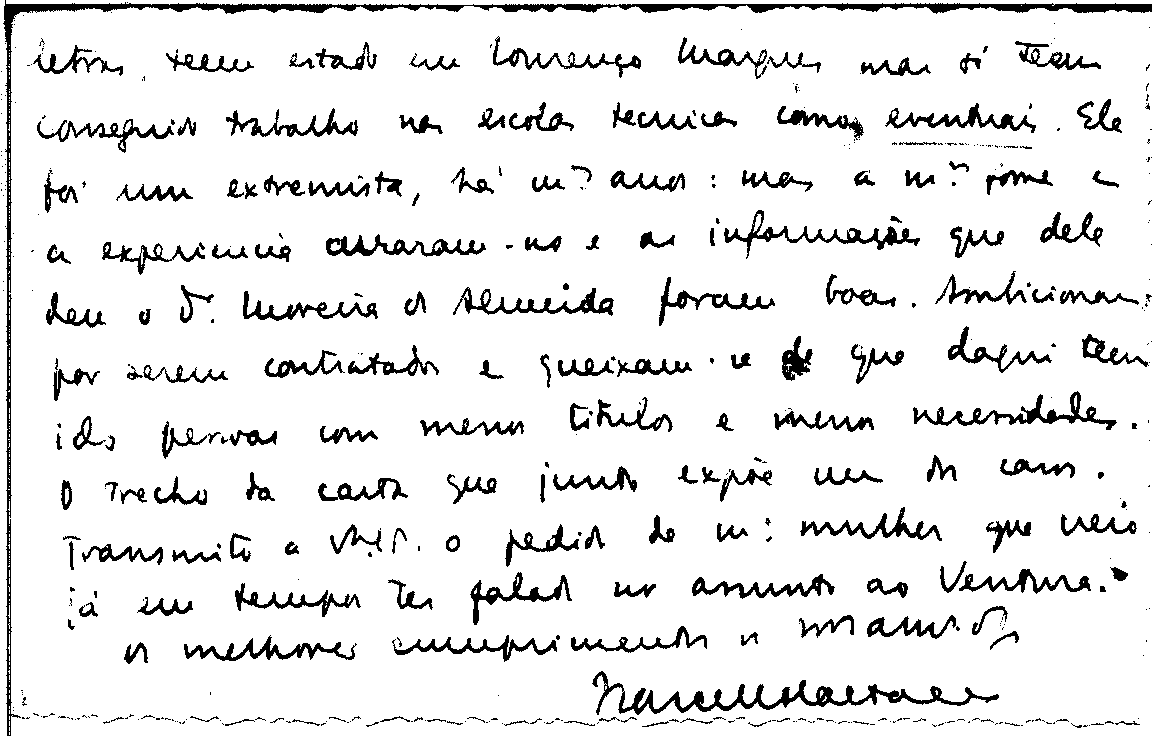 letras, teem estado em Lourenço Marques mas só teem
conseguido trabalho nas escolas tecnicas como eventuais. Ele
foi um extremista, há m.tos anos: mas a m.er fome e
a experiencia curaram-no e as informações que dele
deu o Dr. Moreira de Almeida foram boas. Ambicionam
por serem contratados e queixam-se de que daqui teem
ido pessoas com menos titulos e menos necessidades.
O trecho da carta que junto expõe um dos casos.
Transmito a V. o pedido de m.a mulher que veio
já em tempos ter falado no assunto ao Ventura.
Os melhores cumprimentos
Marcello Caetano